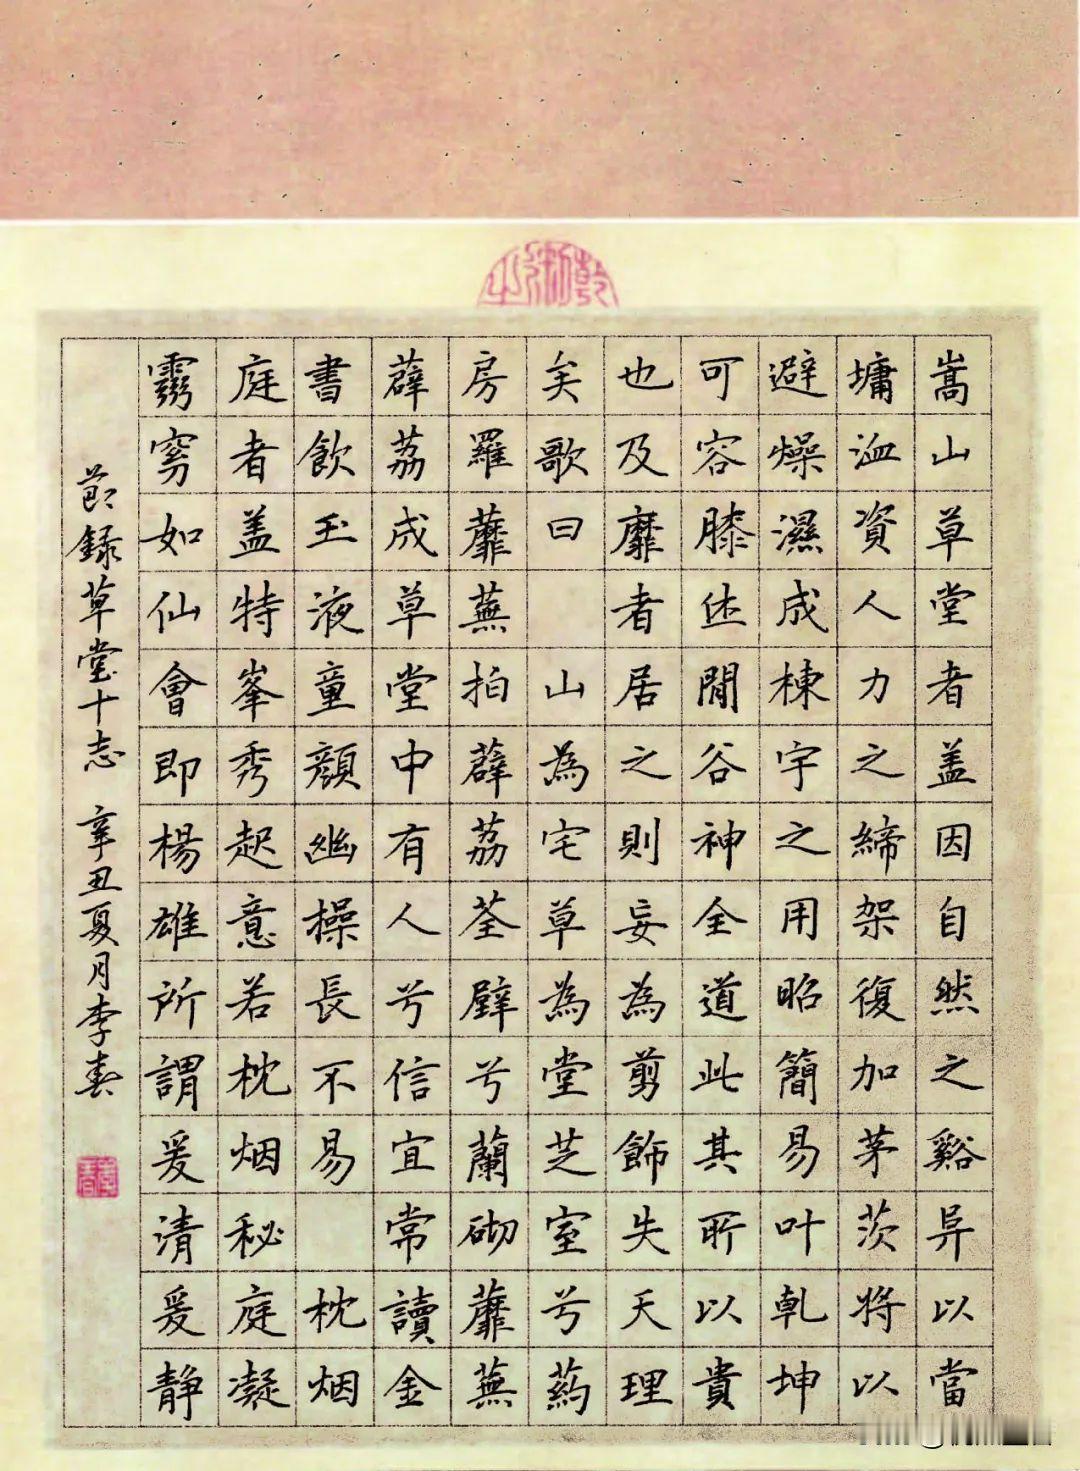 嵩山草堂者盖因自然之谿异以當
墉洫資人力之締架復加茅茨将以
避燥濕成棟宇之用昭簡易叶乹坤
可容膝休閒谷神全道此其所以貴
也及靡者居之則妄為剪飾失天理
矣歌曰 山為宅草為堂芝室兮葯
房羅蘼蕪拍薜荔荃壁兮蘭砌蘼蕪
薜荔成草堂中有人兮信宜常讀金
書飲玉液童顏幽操長不易 枕烟
庭者盖特峯秀起意若枕烟秘庭凝
靈窈如仙會即楊雄所謂爰清爰静
節録草堂十志 辛丑夏月李春